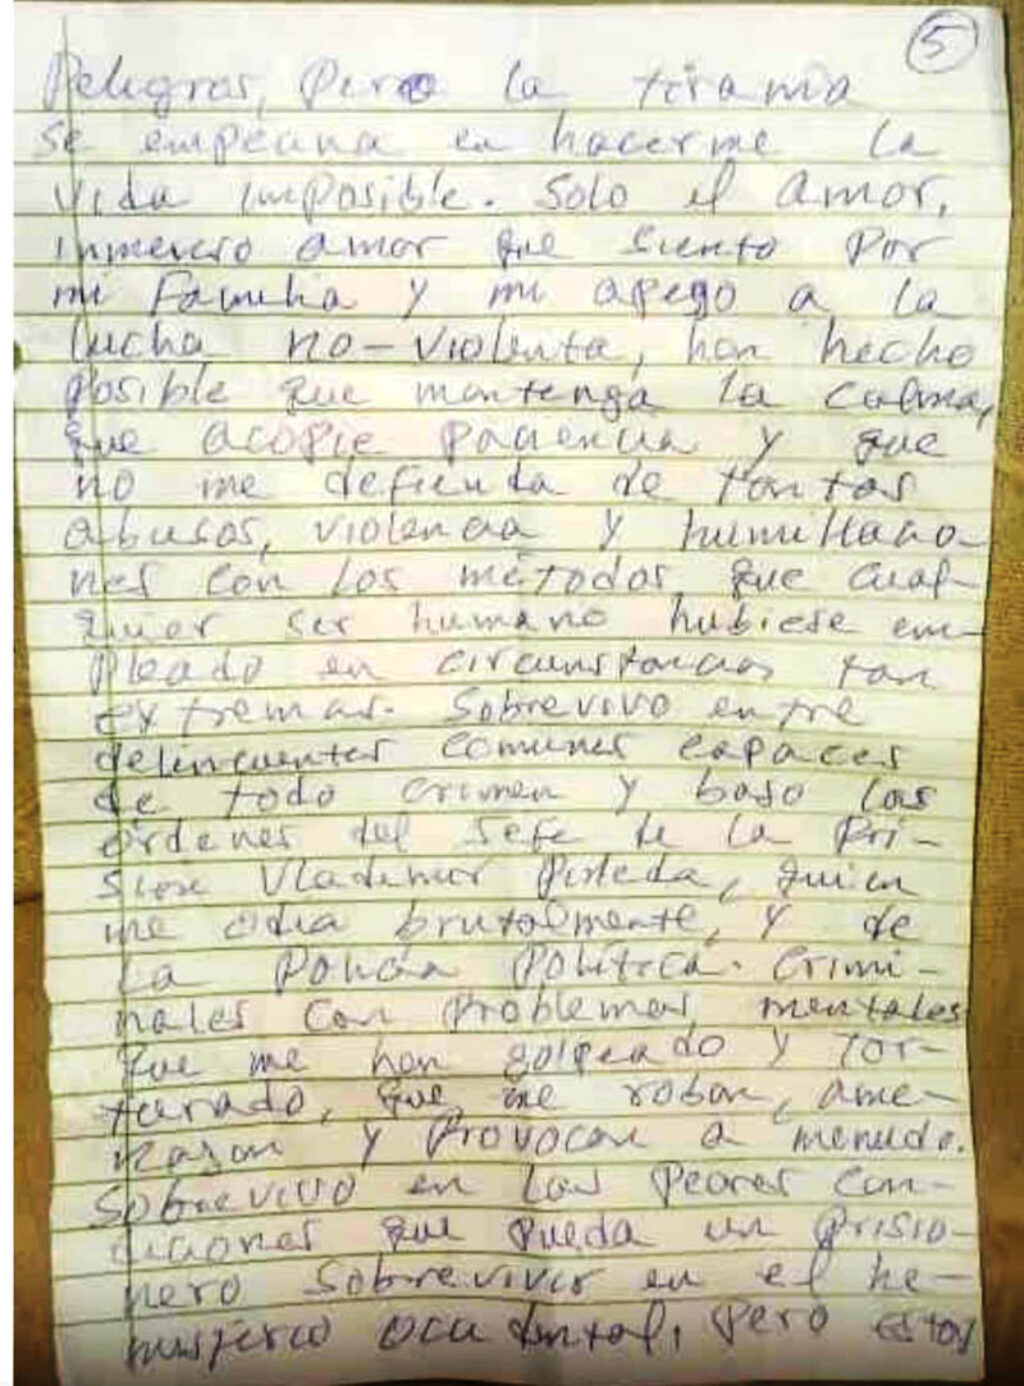 5
Peligros, Pero la tiranía
se empeaña en hacerme la
vida imposible. Solo el amor,
inmenso amor que siento por
mi familia y mi apego a la
lucha no-violenta, han hecho
posible que mantenga la calma,
que acopie paciencia y que
no me defienda de tantos
abusos, violencia y humillacio-
nes con los métodos que cual-
quier ser humano hubiese em-
pleado en circunstancias tan
extremas. Sobrevivo entre
delincuentes comunes capaces
de todo crimen y bajo las
órdenes del Jefe de la Pri-
sión Vladimir, quien
me odia brutalmente, y de
la Policía Política. Crimi-
nales con problemas mentales
que me han golpeado y tor-
turado, que me roban, ame-
nazan y provocan a menudo.
Sobrevivo en las peores con-
diciones que pueda un prisio-
nero sobrevivir en el he-
misferio occidental, pero estoy